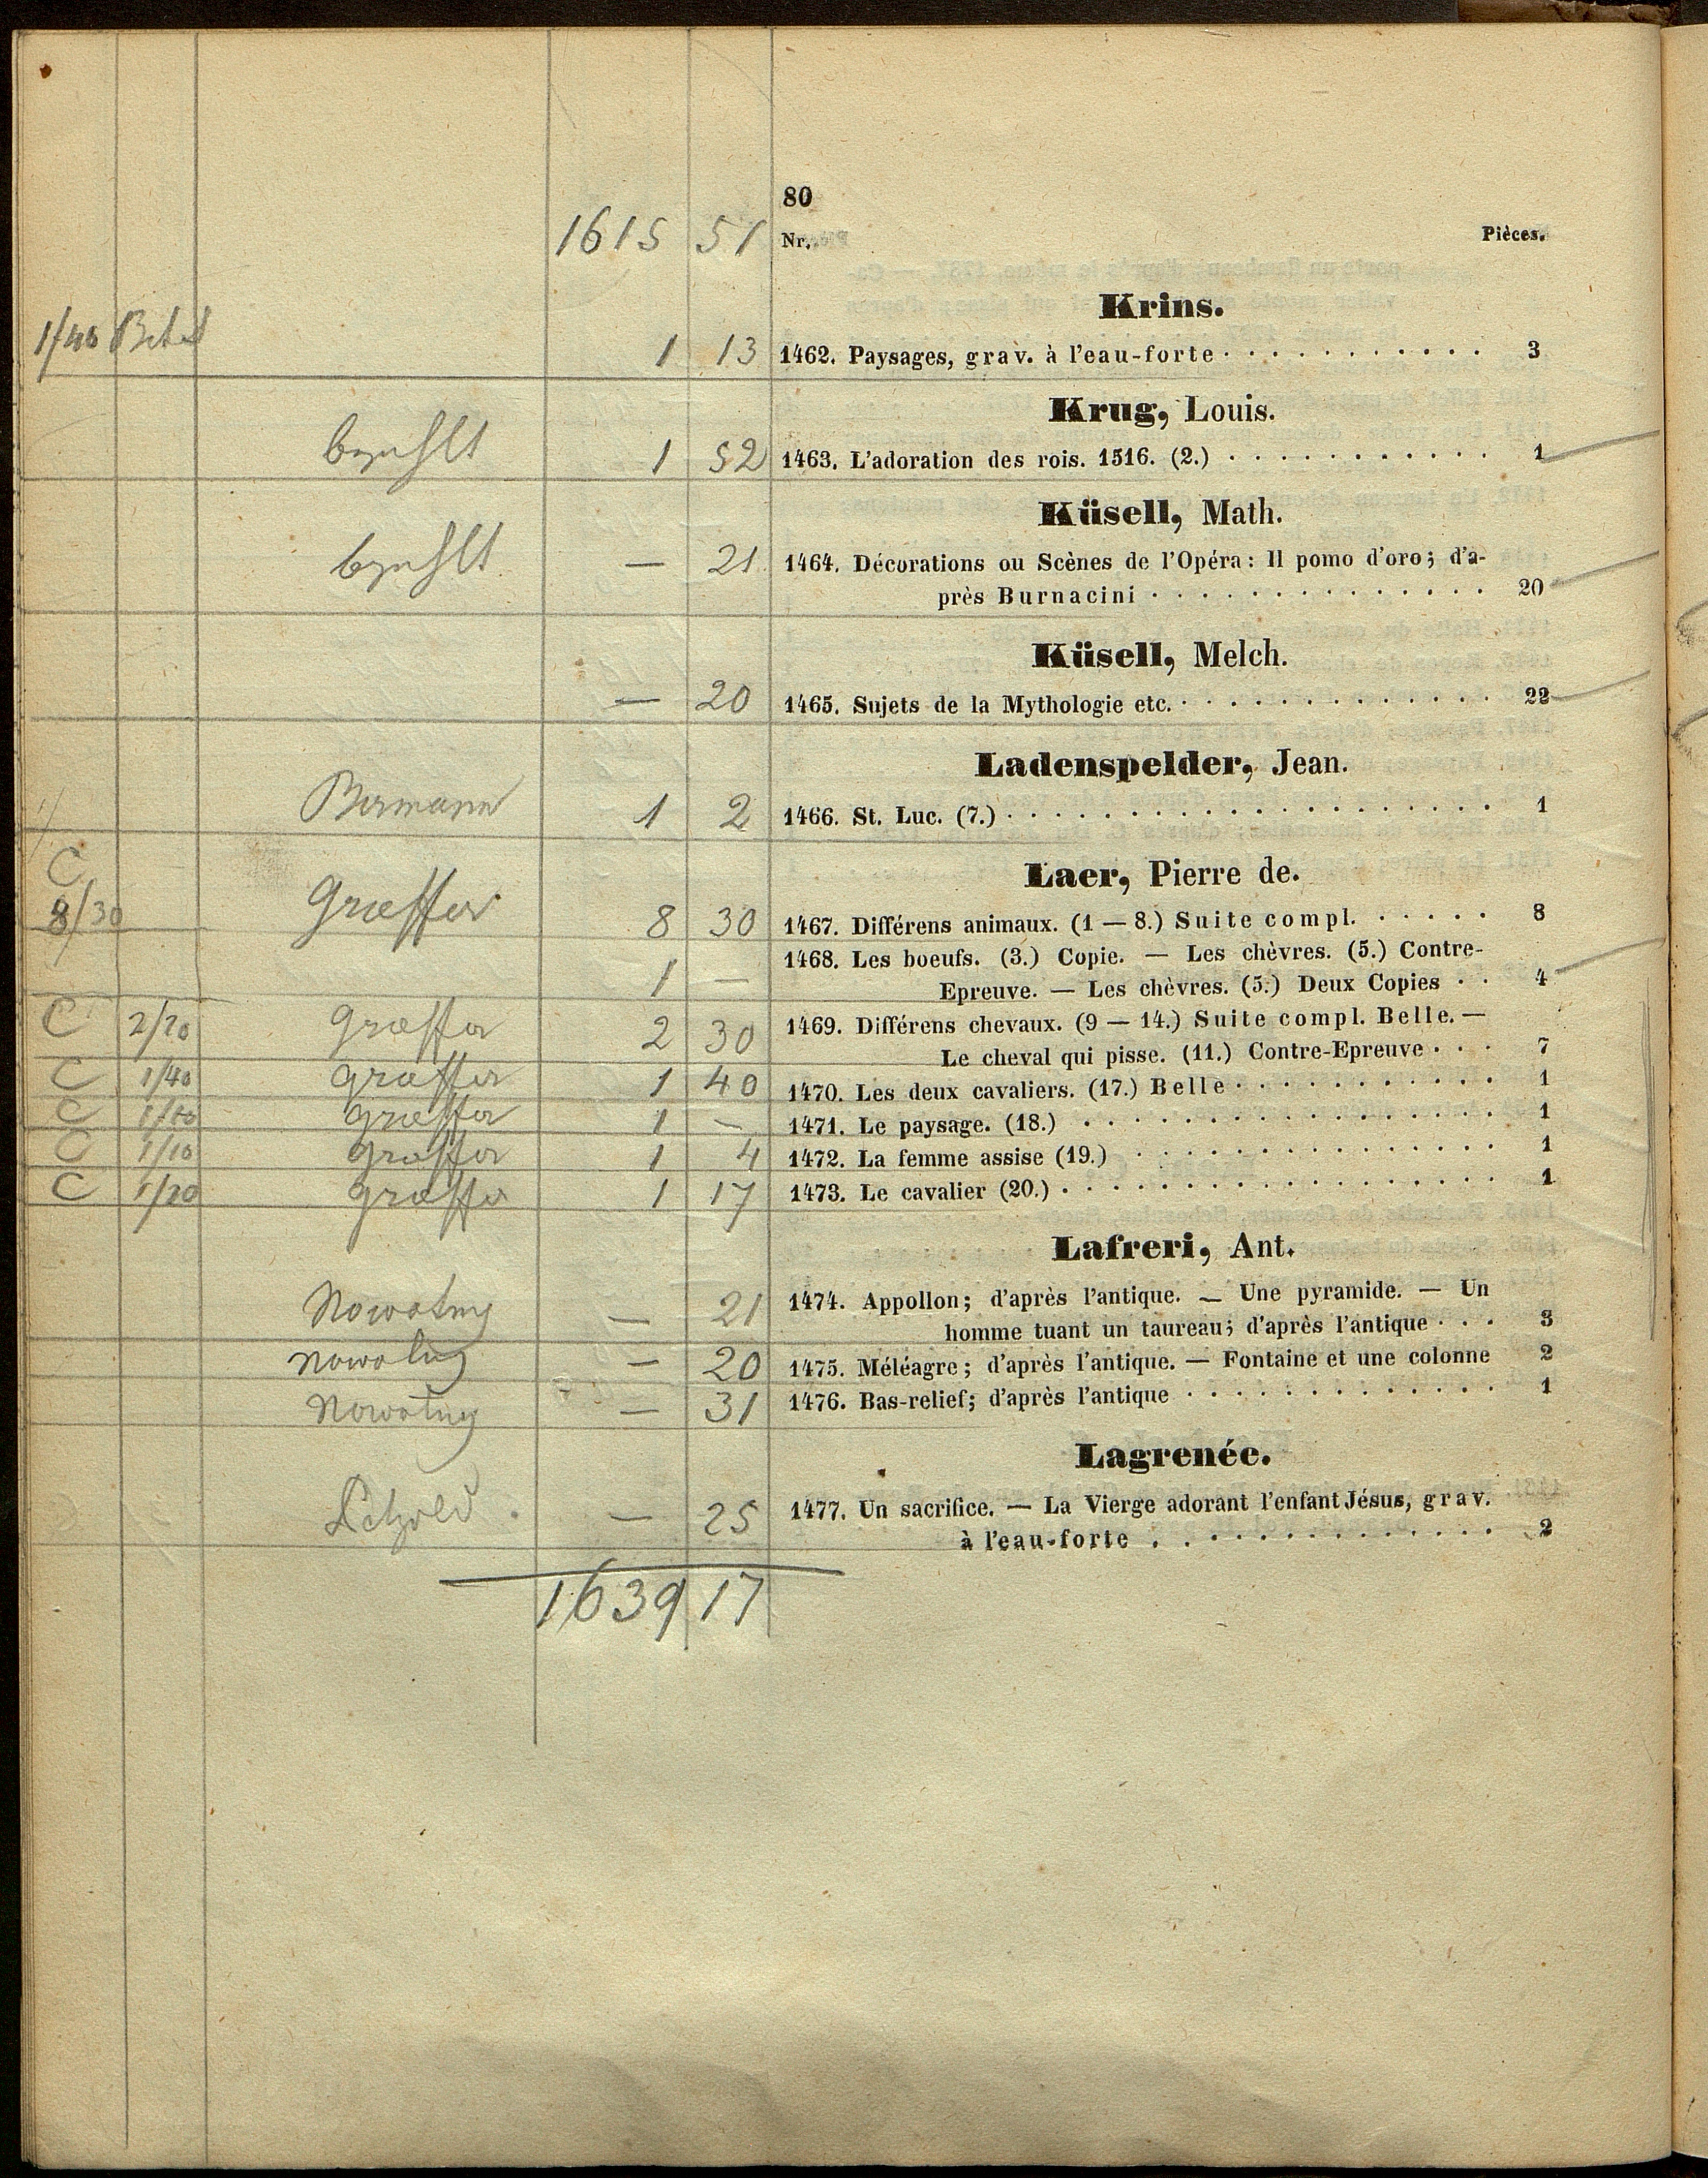 80
1615 51 Nr. Pièces.
Krins.
1/40 1 13 1462. Paysages, grav. à l'eau-forte 3
Krug, Louis.
bezahlt 1 52 1463. L'adoration des rois. 1516. (2.) 1
Küsell, Math.
bezahlt — 21 1464. Décorations ou Scènes de l'Opéra: Il pomo d'oro; d'a-
près Burnacini 20
Küsell, Melch.
— 20 1465. Sujets de la Mythologie etc. 22
Ladenspelder, Jean.
Bermann 1 2 1466. St. Luc. (7.) 1
Laer, Pierre de.
C
8/30 Graeffer 8 30 1467. Différens animaux. (1 — 8.) Suite compl. 8
1 — 1468. Les boeufs. (3.) Copie. — Les chèvres. (5.) Contre-
Epreuve. — Les chèvres. (5.) Deux Copies 4
C Graeffer 2 30 1469. Différens chevaux. (9 — 14.) Suite compl. Belle. —
Le cheval qui pisse. (11.) Contre-Epreuve 7
C 1/40 Graeffer 1 40 1470. Les deux cavaliers. (17.) Belle 1
C Graeffer 1 — 1471. Le paysage. (18.) 1
C 1/10 Graeffer 1 4 1472. La femme assise (19.) 1
C 1/20 Graeffer 1 17 1473. Le cavalier (20.) 1
Lafreri, Ant.
Nowotny — 21 1474. Appollon; d'après l'antique. — Une pyramide. — Un
homme tuant un taureau; d'après l'antique 3
Nowotny — 20 1475. Méléagre; d'après l'antique. — Fontaine et une colonne 2
Nowotny — 31 1476. Bas-relief; d'après l'antique 1
Lagrenée.
— 25 1477. Un sacrifice. — La Vierge adorant l'enfant Jésus, grav.
à l'eau-forte 2
1639 17